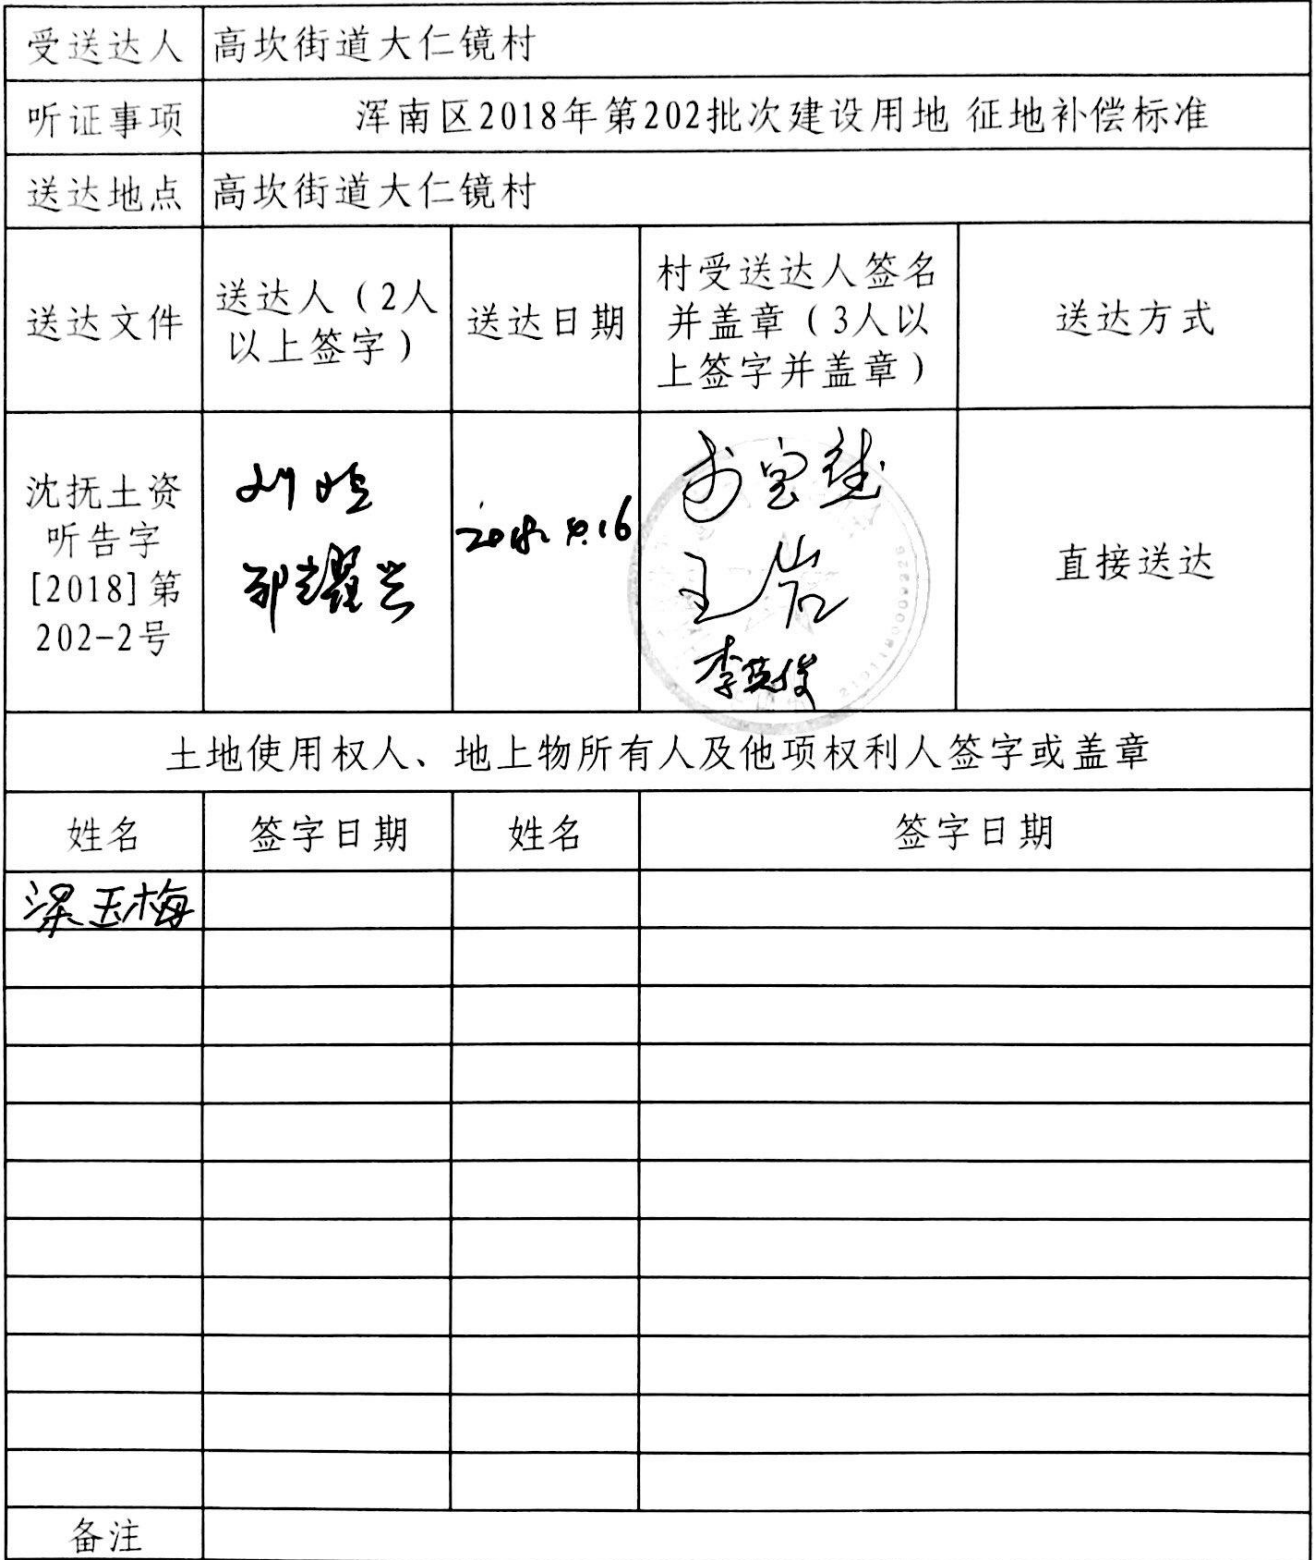 受送达人 高坎街道大仁镜村
听证事项 浑南区2018年第202批次建设用地 征地补偿标准
送达地点 高坎街道大仁镜村
送达文件
送达人(2人
以上签字)
送达日期
村受送达人签名
并盖章(3人以
上签字并盖章)
送达方式
沈抚土资
听告字
[2018]第
202-2号
王岩
李英俊
直接送达
土地使用权人、地上物所有人及他项权利人签字或盖章
姓名 签字日期 姓名 签字日期
梁玉梅
备注